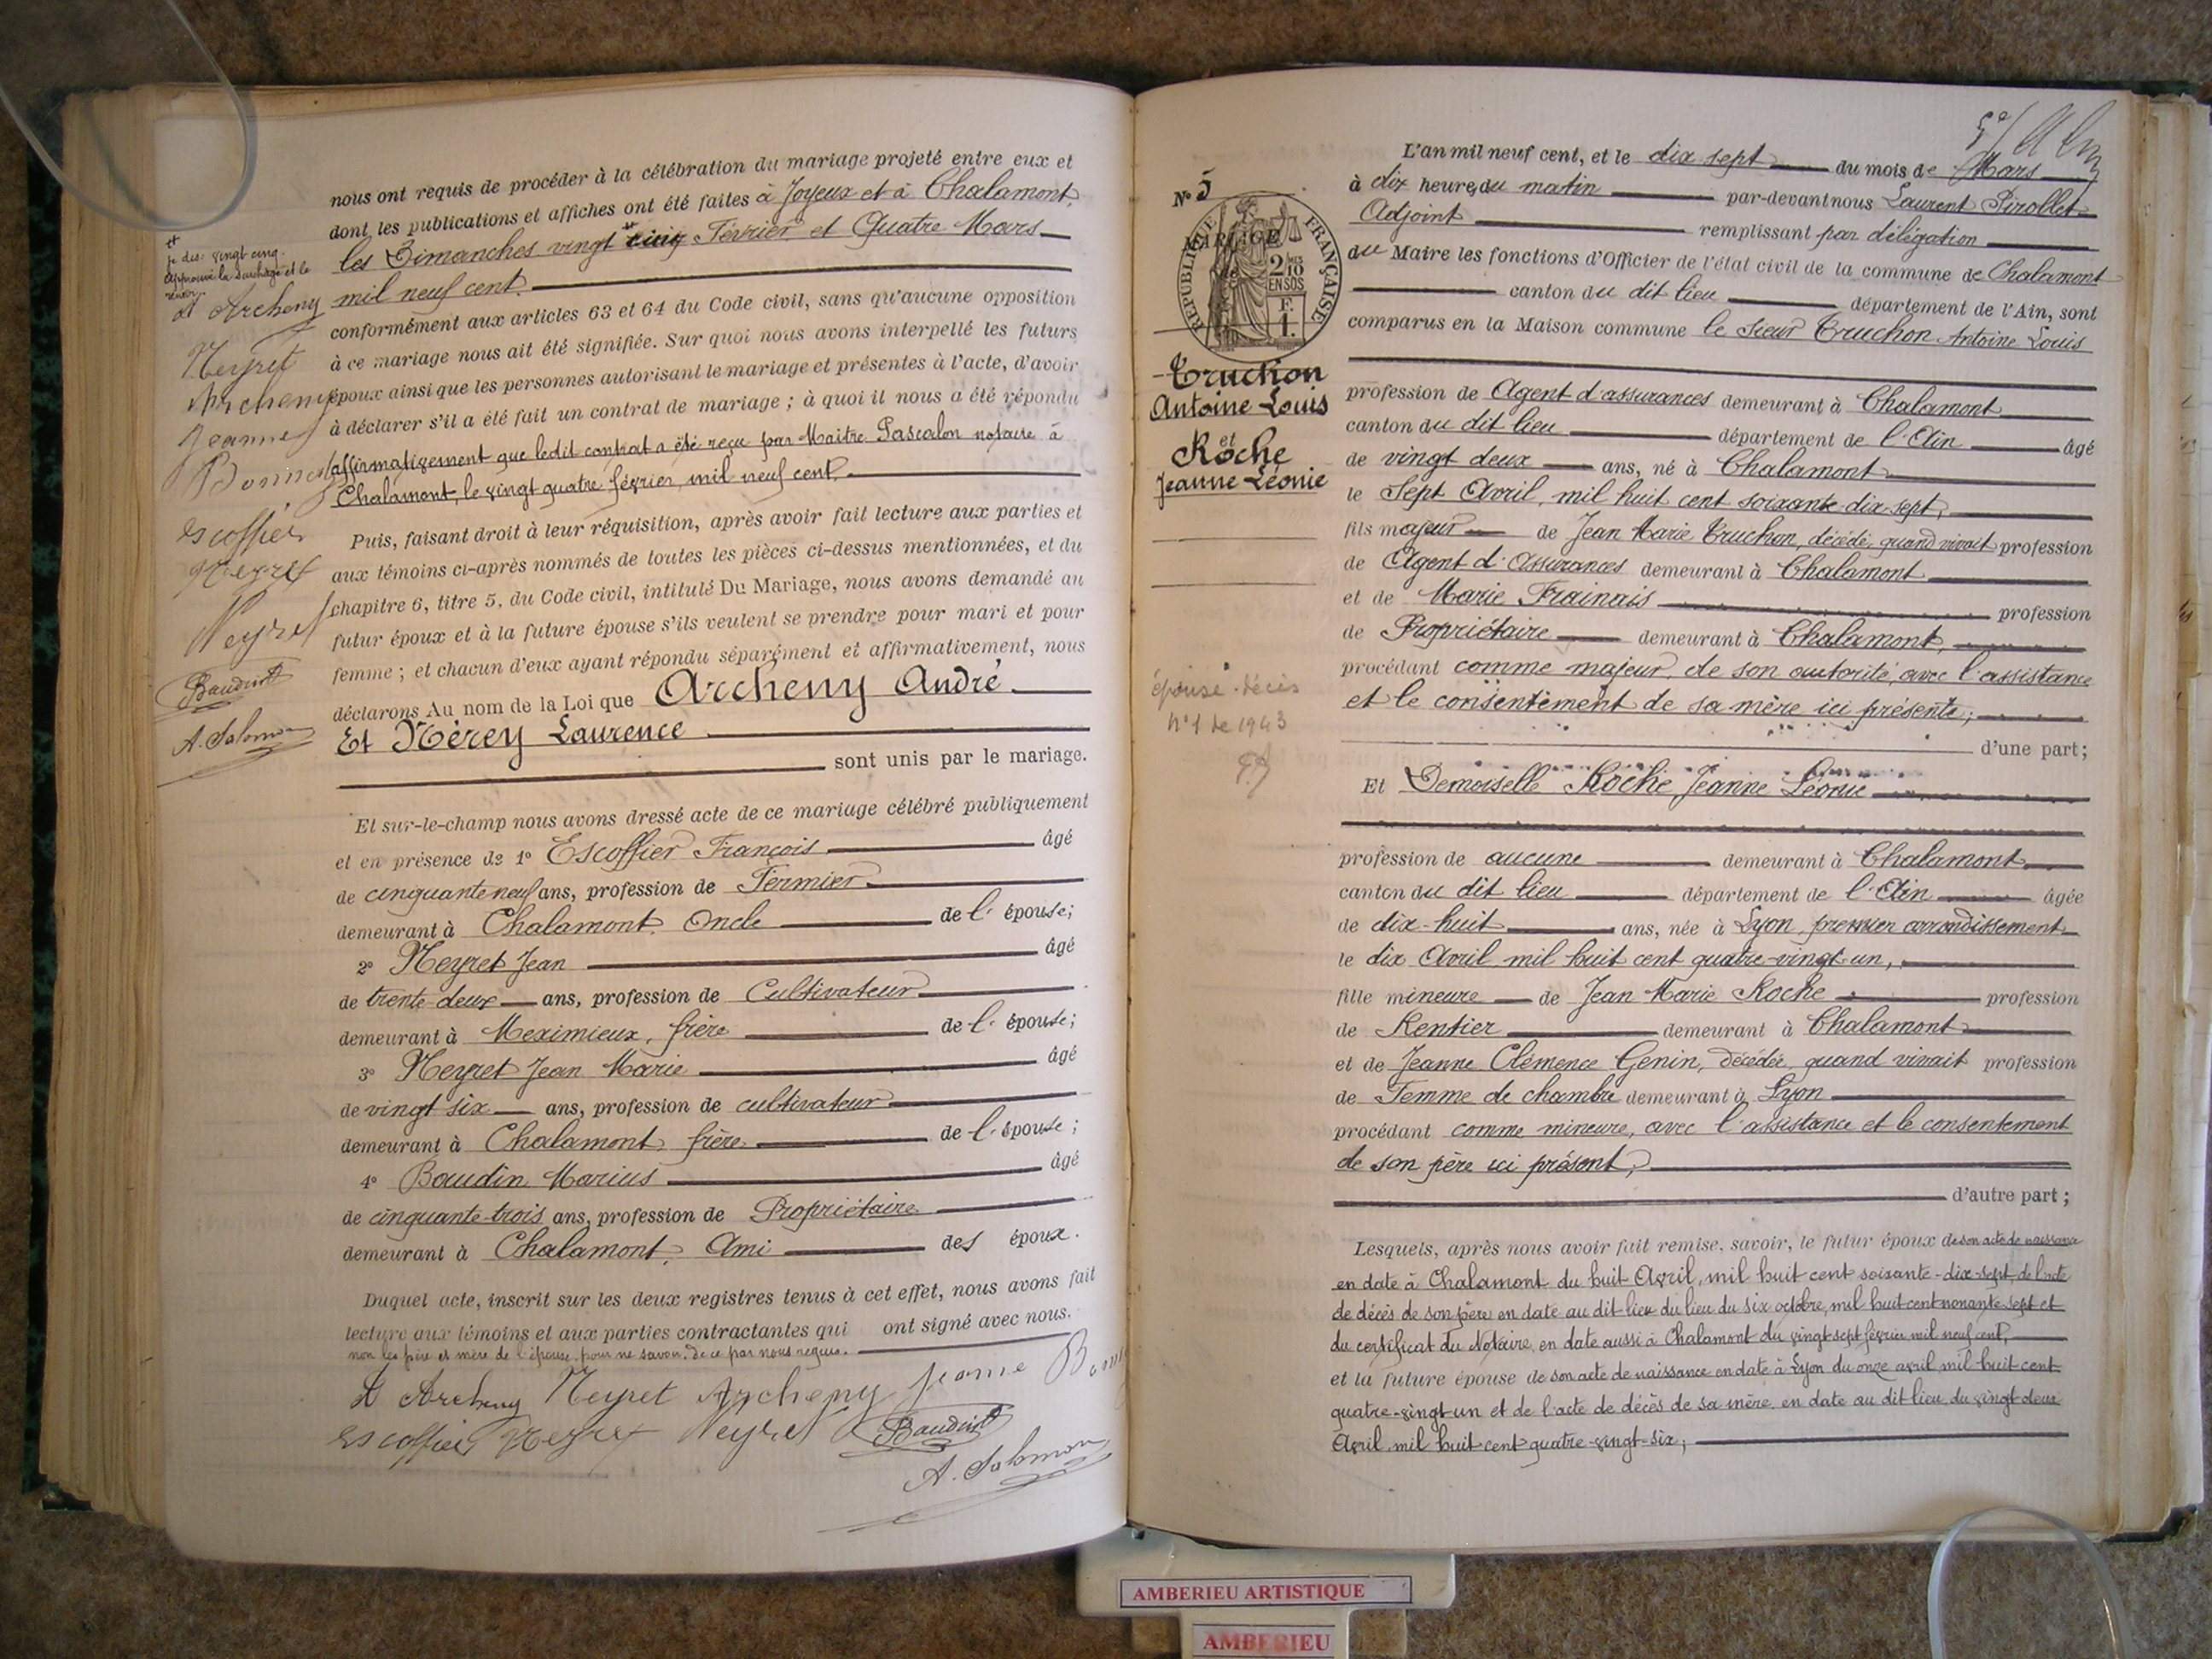 nous ont requis de procéder à la célébration du mariage projeté entre eux et
dont les publications et affiches ont été faites à Joyeux et à Chalamont,
les Dimanches vingt cinq Février et Quatre Mars
mil neuf cent.
conformément aux articles 63 et 64 du Code civil, sans qu'aucune opposition
à ce mariage nous ait été signifiée. Sur quoi nous avons interpellé les futurs
époux ainsi que les personnes autorisant le mariage et présentes à l'acte, d'avoir
à déclarer s'il a été fait un contrat de mariage ; à quoi il nous a été répondu
affirmativement que ledit contrat a été reçu par Maître Pascalon notaire à
Chalamont, le vingt quatre février mil neuf cent.
Puis, faisant droit à leur réquisition, après avoir fait lecture aux parties et
aux témoins ci-après nommés de toutes les pièces ci-dessus mentionnées, et du
chapitre 6, titre 5, du Code civil, intitulé Du Mariage, nous avons demandé au
futur époux et à la future épouse s'ils veulent se prendre pour mari et pour
femme ; et chacun d'eux ayant répondu séparément et affirmativement, nous
déclarons Au nom de la Loi que Archeny André
Et Nérey Laurence
sont unis par le mariage.
Et sur-le-champ nous avons dressé acte de ce mariage célébré publiquement
et en présence de 1° Escoffier François âgé
de cinquante neuf ans, profession de Fermier
demeurant à Chalamont, Oncle de l' épouse;
2° Neyret Jean âgé
de trente deux ans, profession de Cultivateur
demeurant à Meximieux, frère de l' épouse;
3° Neyret Jean Marie âgé
de vingt six ans, profession de cultivateur
demeurant à Chalamont, frère de l' épouse ;
4° Baudin Marius âgé
de cinquante-trois ans, profession de Propriétaire
demeurant à Chalamont, Ami des époux.
Duquel acte, inscrit sur les deux registres tenus à cet effet, nous avons fait
lecture aux témoins et aux parties contractantes qui ont signé avec nous.
non les père et mère de l'épouse pour ne savoir, de ce par nous requis.
A Archeny Neyret Archeny Jeanne
Escoffier Neyret Neyret Baudin
A. Salomon
je dis: vingt cinq.
approuvé la surcharge et le
renvoi.
A Archeny
Neyret
Archeny
Jeanne
Escoffier
Neyret
Neyret
Baudin
A. Salomon
N° 5
RÉPUBLIQUE FRANÇAISE
MARIAGE
2/10
EN SUS
F.
1.
Truchon
Antoine-Louis
et
Roche
Jeanne-Léonie
épouse décès
n° 1 de 1943
L'an mil neuf cent, et le dix sept du mois de Mars
à dix heures du matin par-devant nous Laurent Pirollet
Adjoint remplissant par délégation
du Maire les fonctions d'Officier de l'état civil de la commune de Chalamont
canton du dit lieu département de l'Ain, sont
comparus en la Maison commune le sieur Truchon Antoine Louis
profession de Agent d'assurances demeurant à Chalamont
canton du dit lieu département de l'Ain âgé
de vingt deux ans, né à Chalamont
le Sept Avril, mil huit cent soixante dix-sept,
fils majeur de Jean Marie Truchon, décédé, quand vivait profession
de Agent d'Assurances demeurant à Chalamont
et de Marie Frainais profession
de Propriétaire demeurant à Chalamont,
procédant comme majeur, de son autorité, avec l'assistance
et le consentement de sa mère ici présente;
d'une part;
Et Demoiselle Roche Jeanne Léonie
profession de aucune demeurant à Chalamont
canton du dit lieu département de l'Ain âgée
de dix-huit ans, née à Lyon, premier arrondissement
le dix Avril mil huit cent quatre-vingt-un,
fille mineure de Jean Marie Roche profession
de Rentier demeurant à Chalamont
et de Jeanne Clémence Genin, décédée, quand vivait profession
de Femme de chambre demeurant à Lyon
procédant comme mineure, avec l'assistance et le consentement
de son père ici présent,
d'autre part ;
Lesquels, après nous avoir fait remise, savoir, le futur époux de son acte de naissance
en date à Chalamont du huit Avril, mil huit cent soixante-dix-sept, de l'acte
de décès de son père en date au dit lieu du lieu du six octobre, mil huit cent nonante-sept et
du certificat du Notaire, en date aussi à Chalamont du vingt sept février mil neuf cent,
et la future épouse de son acte de naissance en date à Lyon du onze avril mil huit cent
quatre-vingt-un et de l'acte de décès de sa mère en date au dit lieu du vingt deux
Avril mil huit cent quatre-vingt-six;
AMBERIEU ARTISTIQUE
AMBERIEU